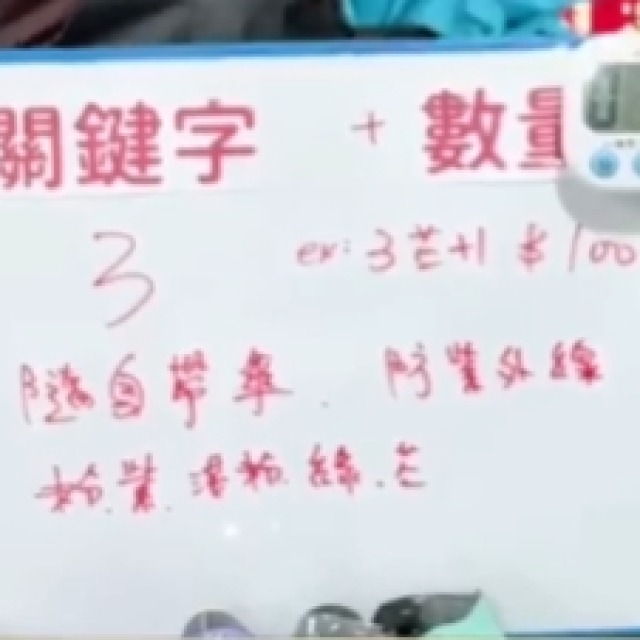 關鍵字 + 數量
3 ex: 3芒+1 $100
隨身帶傘. 防紫外線
粉.紫. 粉.綠.芒